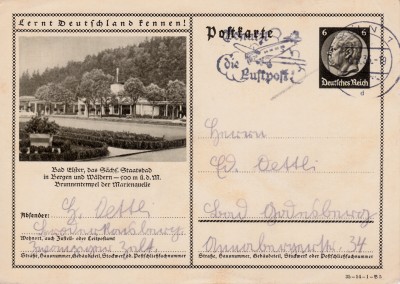 Lernt Deutschland kennen!
Bad Elster, das Sächs. Staatsbad
in Bergen und Wäldern – 500 m ü. d. M.
Brunnentempel der Marienquelle
Absender:
Oettli
Wohnort, auch Zustell- oder Leitpostamt
Straße, Hausnummer, Gebäudeteil, Stockwerk od. Postschließfachnummer
Postkarte
die
Luftpost!
6 6
Deutsches Reich
d
Herrn
Ed. Oettli
Bad Godesberg
Annabergerstr. 34
Straße, Hausnummer, Gebäudeteil, Stockwerk oder Postschließfachnummer